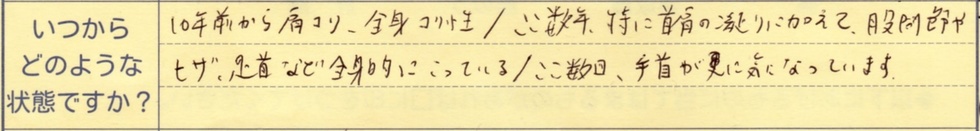 いつから
どのような
状態ですか？
10年前から肩コリ、全身コリ性 / ここ数年、特に首肩の凝りに加えて、股関節や
ヒザ、足首など全身的にこっている / ここ数日、手首が更に気になっています。